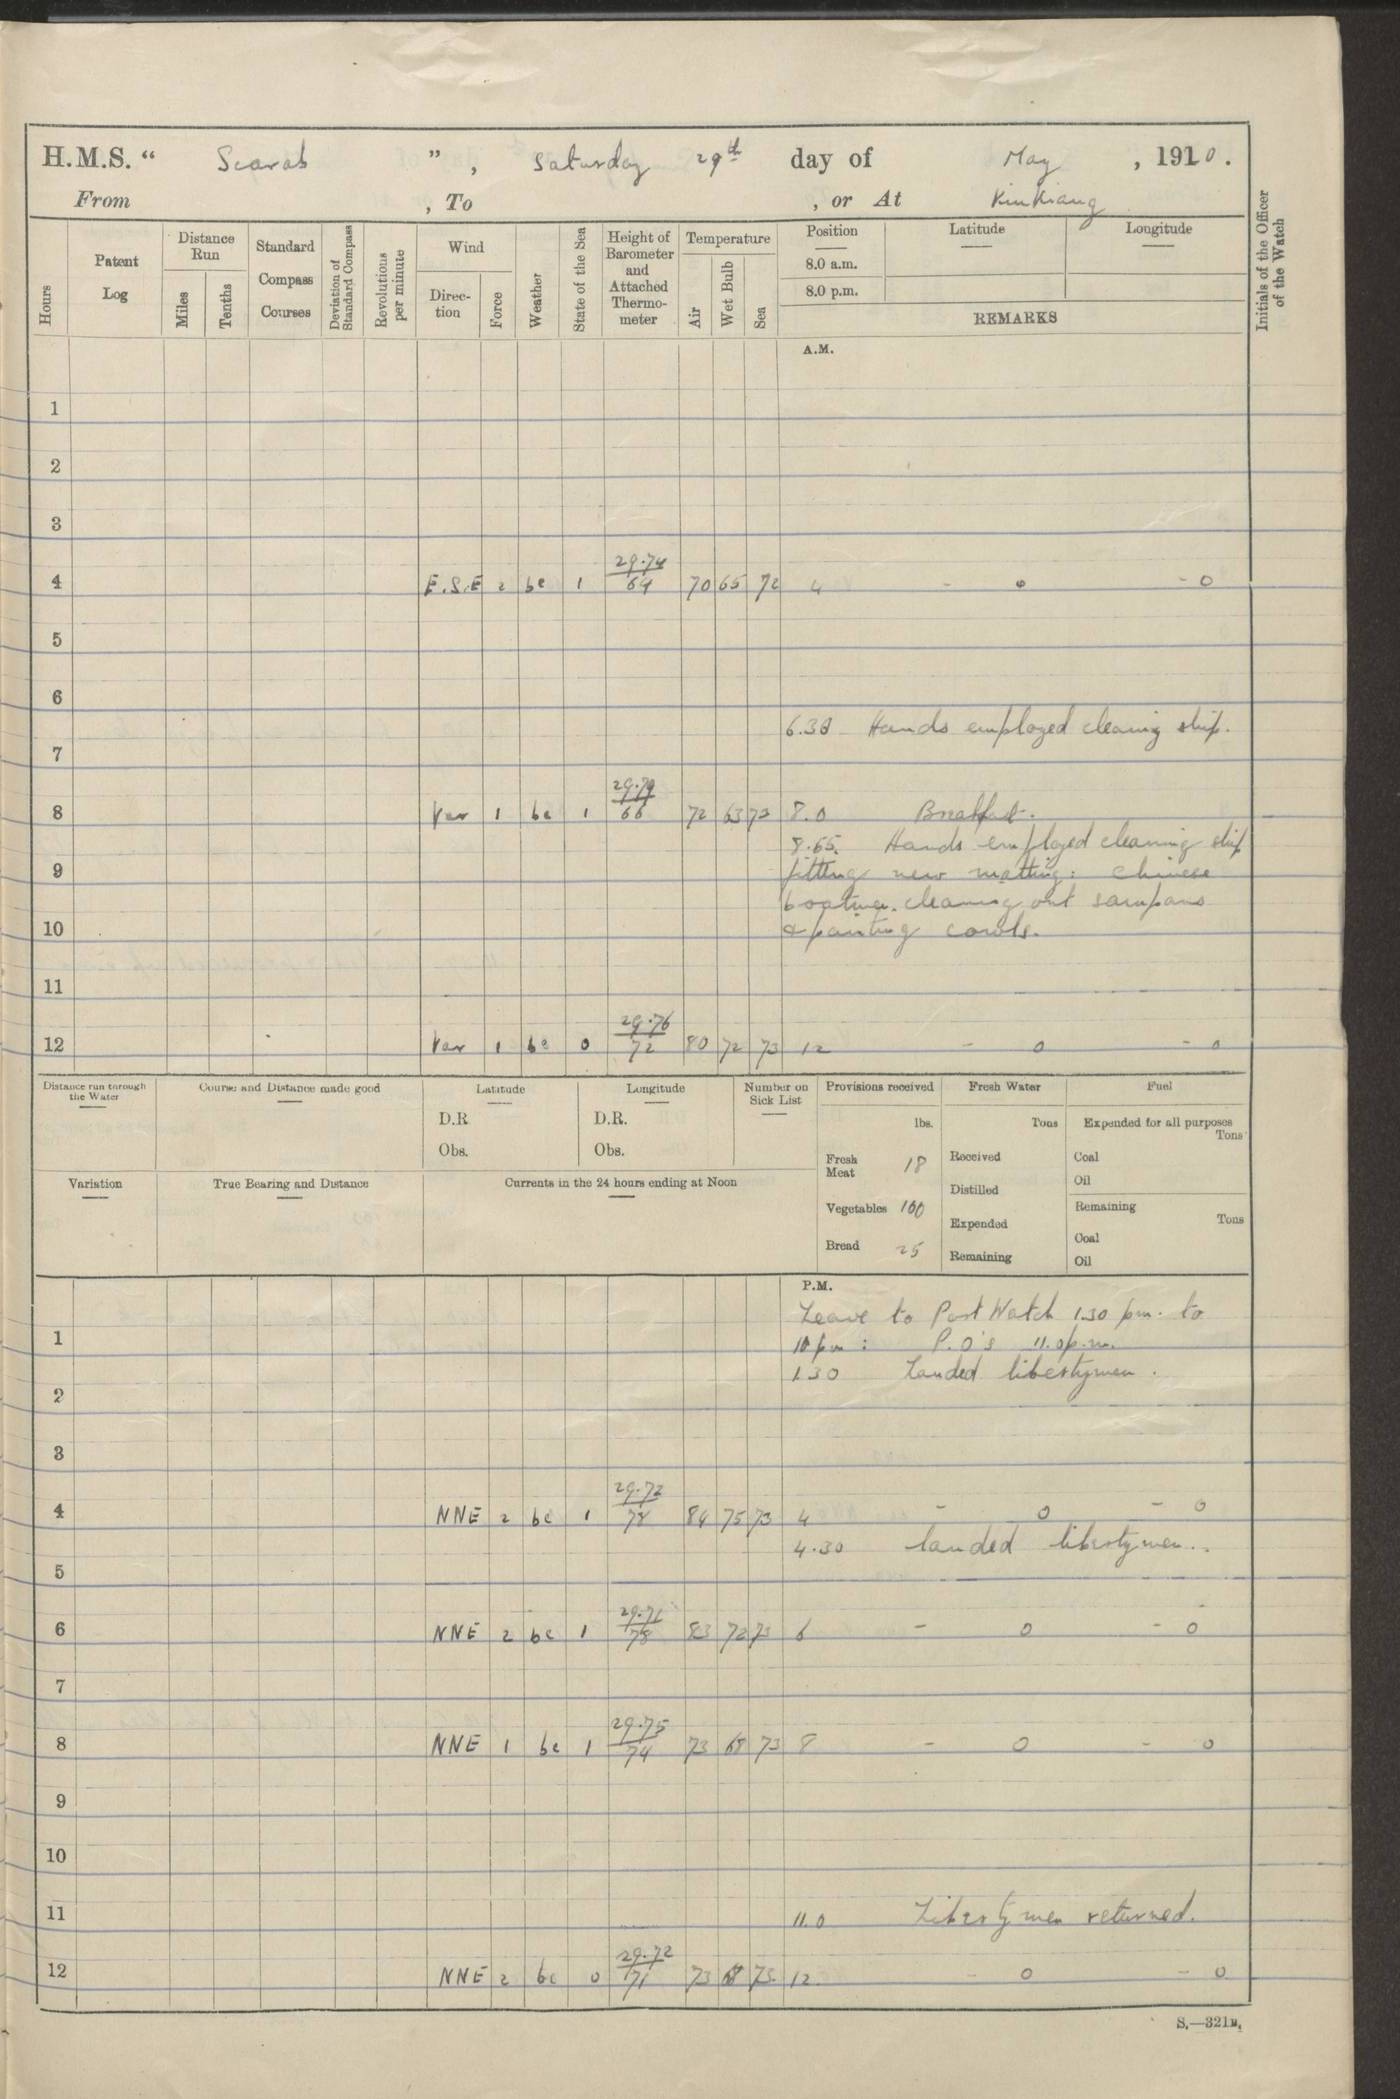 H.M.S. “ Scarab ” , Saturday 29th day of May , 1910.
From , To , or At KiuKiang
Hours
Patent Log
Distance Run
Miles
Tenths
Standard Compass Courses
Deviation of Standard Compass
Revolutions per minute
Wind
Direc-tion
Force
Weather
State of the Sea
Height of Barometer and Attached Thermo-meter
Temperature
Air
Wet Bulb
Sea
Position
8.0 a.m.
8.0 p.m.
Latitude
Longitude
REMARKS
Initials of the Officer of the Watch
A.M.
1
2
3
29.74
4 E.S.E 2 bc 1 64 70 65 72 4 - 0 - 0
5
6
6.30 Hands employed cleaning ship.
7
29.79
8 Var 1 bc 1 66 72 63 72 8.0 Breakfast.
8.55. Hands employed cleaning ship
9 fitting new matting: Chinese
boatmen cleaning out sampans
10 & painting cowls.
11
29.76
12 Var 1 bc 0 72 80 72 73 12 - 0 - 0
Distance run through the Water
Course and Distance made good
Latitude
D.R
Obs.
Longitude
D.R.
Obs.
Number on Sick List
Provisions received
lbs.
Fresh Meat 18
Vegetables 100
Bread 25
Fresh Water
Tons
Received
Distilled
Expended
Remaining
Fuel
Expended for all purposes
Tons
Coal
Oil
Remaining
Tons
Coal
Oil
Variation
True Bearing and Distance
Currents in the 24 hours ending at Noon
P.M.
Leave to Port Watch 1.30 pm. to
1 10 pm : P.O's 11.0 p.m.
1.30 Landed libertymen.
2
3
29.72
4 NNE 2 bc 1 78 84 75 73 4 - 0 - 0
4.30 landed libertymen..
5
29.71
6 NNE 2 bc 1 78 83 72 73 6 - 0 - 0
7
29.75
8 NNE 1 bc 1 74 73 68 73 8 - 0 - 0
9
10
11 11.0 Libertymen returned.
29.72
12 NNE 2 bc 0 71 73 68 73 12 - 0 - 0
S.—321B.